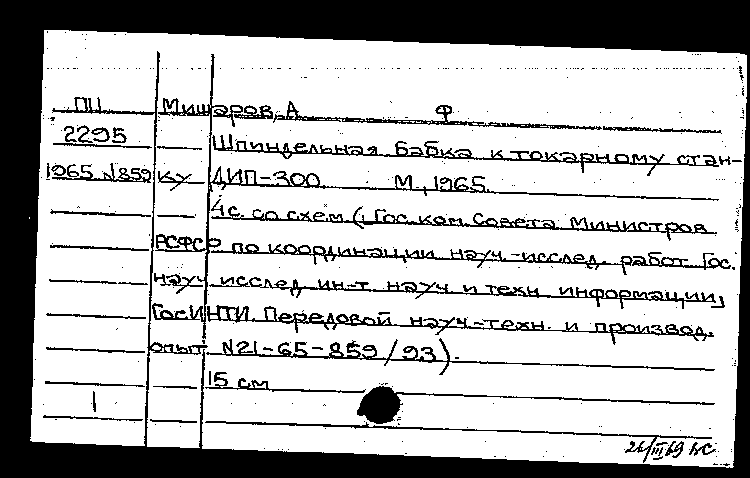 ПЦ Мишаров, А Ф
2295 Шпиндельная бабка к токарному стан-
1965 №859 ку ДИП-300. М., 1965.
4 с. со схем (Гос. ком. Совета Министров
РСФСР по координации науч.-исслед. работ Гос.
науч исслед. ин-т науч и техн. информации,
ГосИНТИ. Передовой науч.-техн. и производ.
опыт N21-65-859/93).
15 см
1